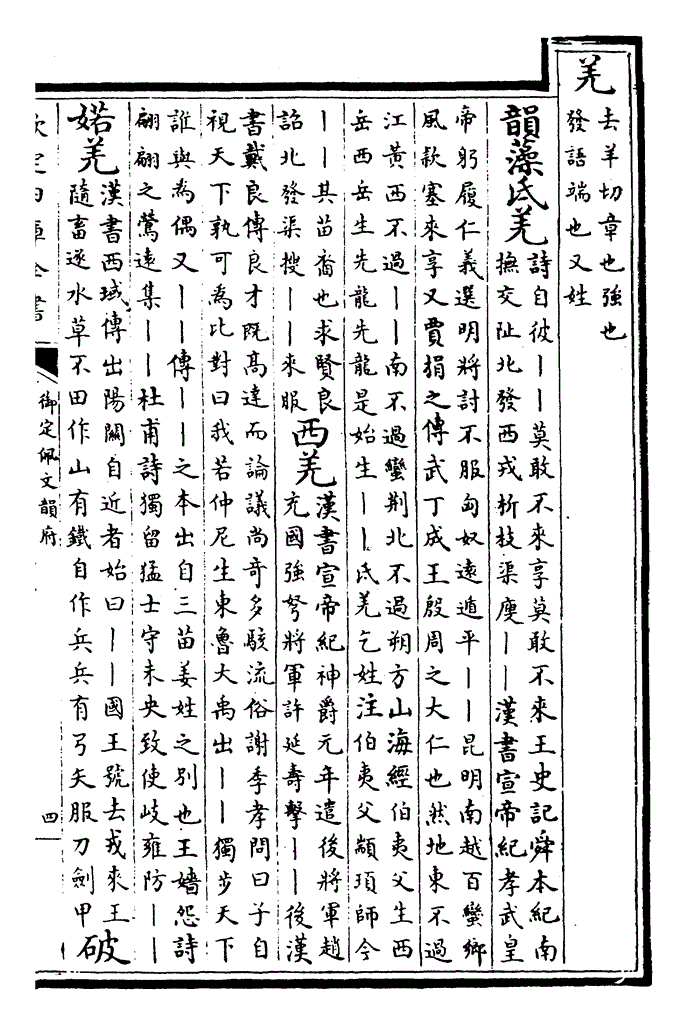 羌
去羊切章也強也
發語端也又姓
韻藻氐羌
詩自彼丨丨莫敢不來享莫敢不來王史記舜本紀南
撫交阯北發西戎析枝渠廋丨丨漢書宣帝紀孝武皇
帝躬履仁義選明將討不服匈奴逺遁平丨丨昆明南越百蠻鄉
風欵塞來享又賈捐之傳武丁成王殷周之大仁也然地東不過
江黃西不過丨丨南不過蠻荆北不過朔方山海經伯夷父生西
岳西岳生先龍先龍是始生丨丨氐羌乞姓注伯夷父顓頊師今
丨丨其苗裔也求賢良
詔北發渠搜丨丨來服
西羌
漢書宣帝紀神爵元年遣後將軍趙
充國強弩將軍許延壽擊丨丨後漢
書戴良傳良才既髙達而論議尚奇多駭流俗謝季孝問曰子自
視天下孰可為比對曰我若仲尼生東魯大禹出丨丨獨步天下
誰與為偶又丨丨傳丨丨之本出自三苗姜姓之别也王嬙怨詩
翩翩之鶯逺集丨丨杜甫詩獨留猛士守未央致使岐雍防丨丨
婼羌
漢書西域傳出陽闗自近者始曰丨丨國王號去戎來王
隨畜逐水草不田作山有鐵自作兵兵有弓矢服刀劍甲
破
欽定四庫全書
御定佩文韻府
四